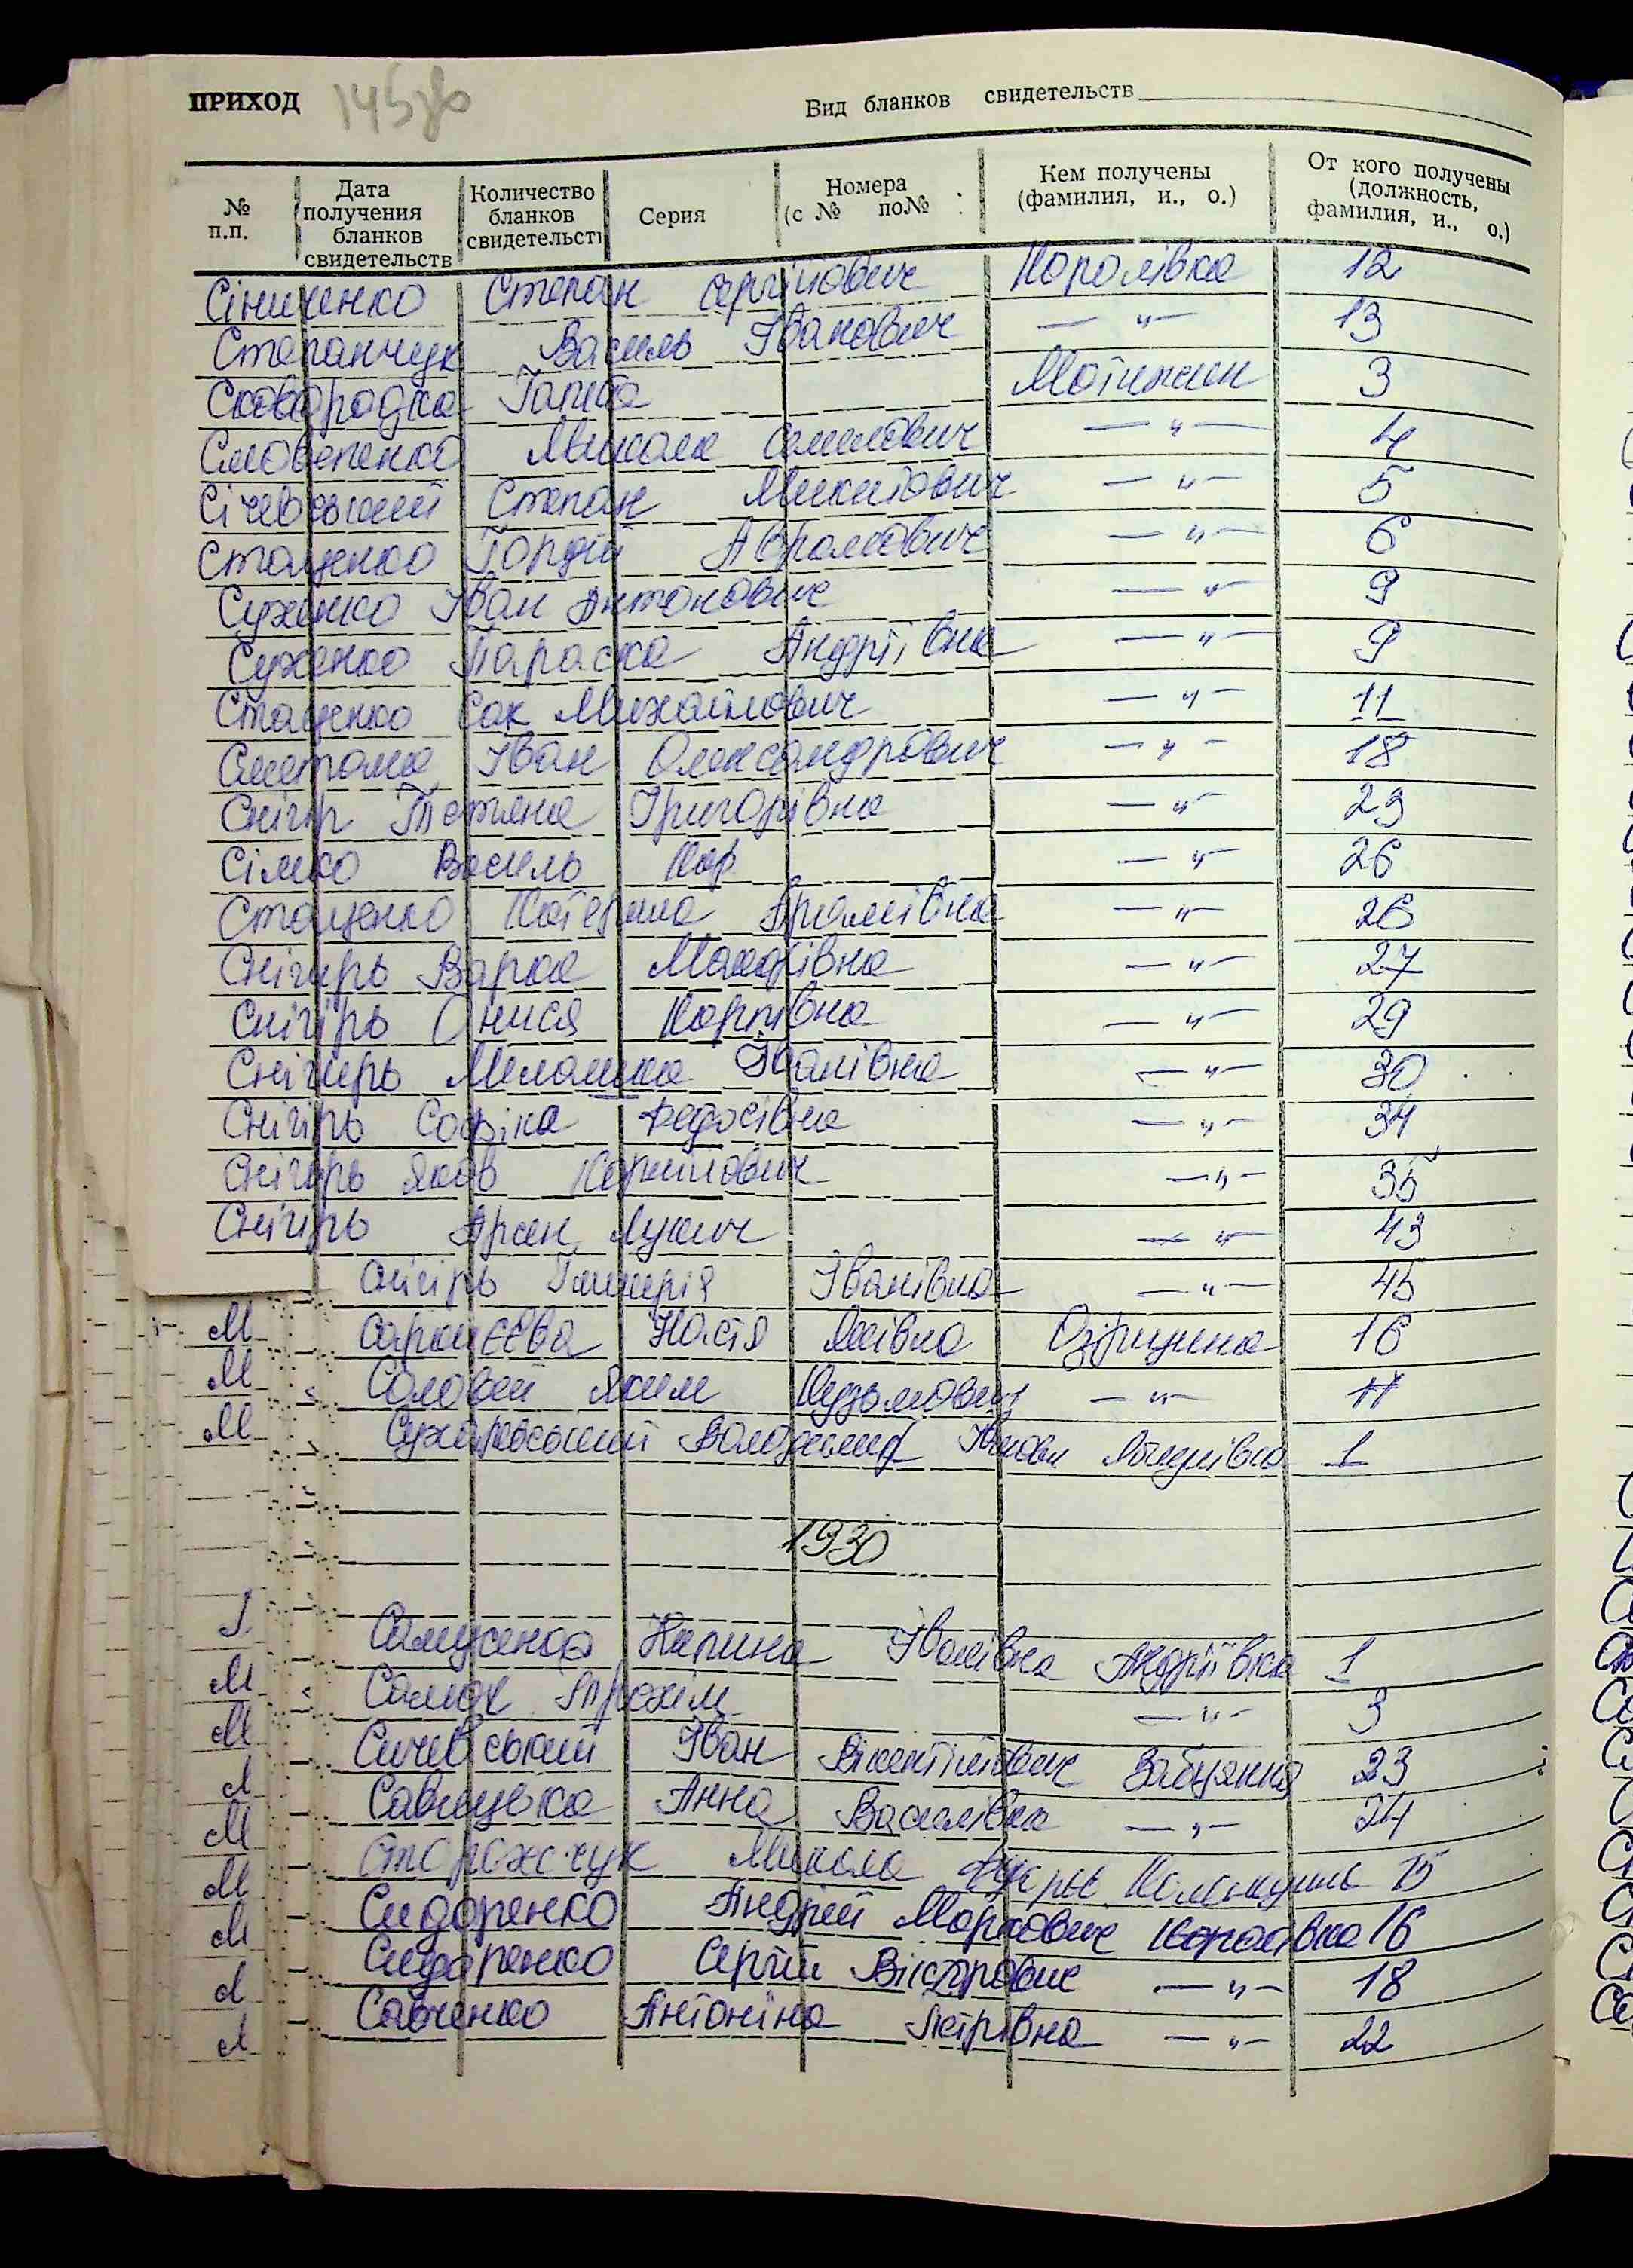 ПРИХОД 145зв Вид бланков свидетельств
№ п.п. Дата получения бланков свидетельств Количество бланков свидетельств Серия Номера (с № по№ Кем получены (фамилия, и., о.) От кого получены (должность, фамилия, и., о.)
Сініченко Степан Сергійович Королівка 12
Степанчук Василь Іванович — " — 13
Сковородка Гапка Мотижин 3
Микола Семенович — " — 4
Січевський Степан Микитович — " — 5
Стаценко Гордій Аврамович — " — 6
Сухенко Іван Антонович — " — 9
Сухенко Параска Андріївна — " — 9
Стаценко Сак Михайлович — " — 11
Сметана Іван Олександрович — " — 18
Снігир Тетяна Григорівна — " — 23
Сімко Василь — " — 26
Стаценко Катерина — " — 26
Снігирь Варка — " — 27
Снігірь Онися Карпівна — " — 29
Снігирь Меланка Іванівна — " — 30
Снігірь Софіка Федосівна — " — 34
Снігирь Яков — " — 35
Снігірь Арсен Лукич — " — 43
Снігірь Іванівна — " — 45
М Настя Озірщина 16
М Соловей Яким Кузьмович — " — 17
М Сухаревський Володимир 1
1930
Самусенко Ірина Іванівна Андріївка 1
М Самок Трохім — " — 3
М Сичевський Іван Вікентійович Забуяння 23
Савицька Анна Василівна — " — 24
М Сторожчук Микола 15
М Сидоренко Андрій Маркович Королівка 16
М Сидоренко Сергій Вікторович — " — 18
Савченко Антоніна Петрівна — " — 22